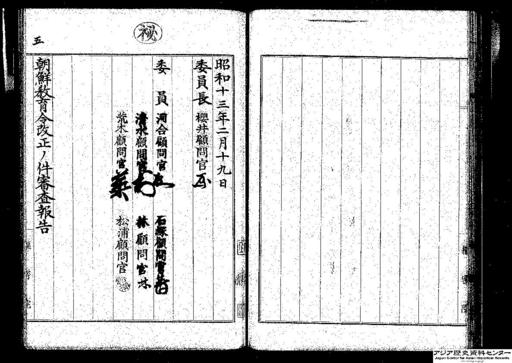 秘
昭和十三年二月十九日
委員長 櫻井顧問官
委員 河合顧問官 石塚顧問官
清水顧問官 林顧問官
荒木顧問官 松浦顧問官
朝鮮教育令改正ノ件審査報告
五
アジア歴史資料センター
Japan Center for Asian Historical Records